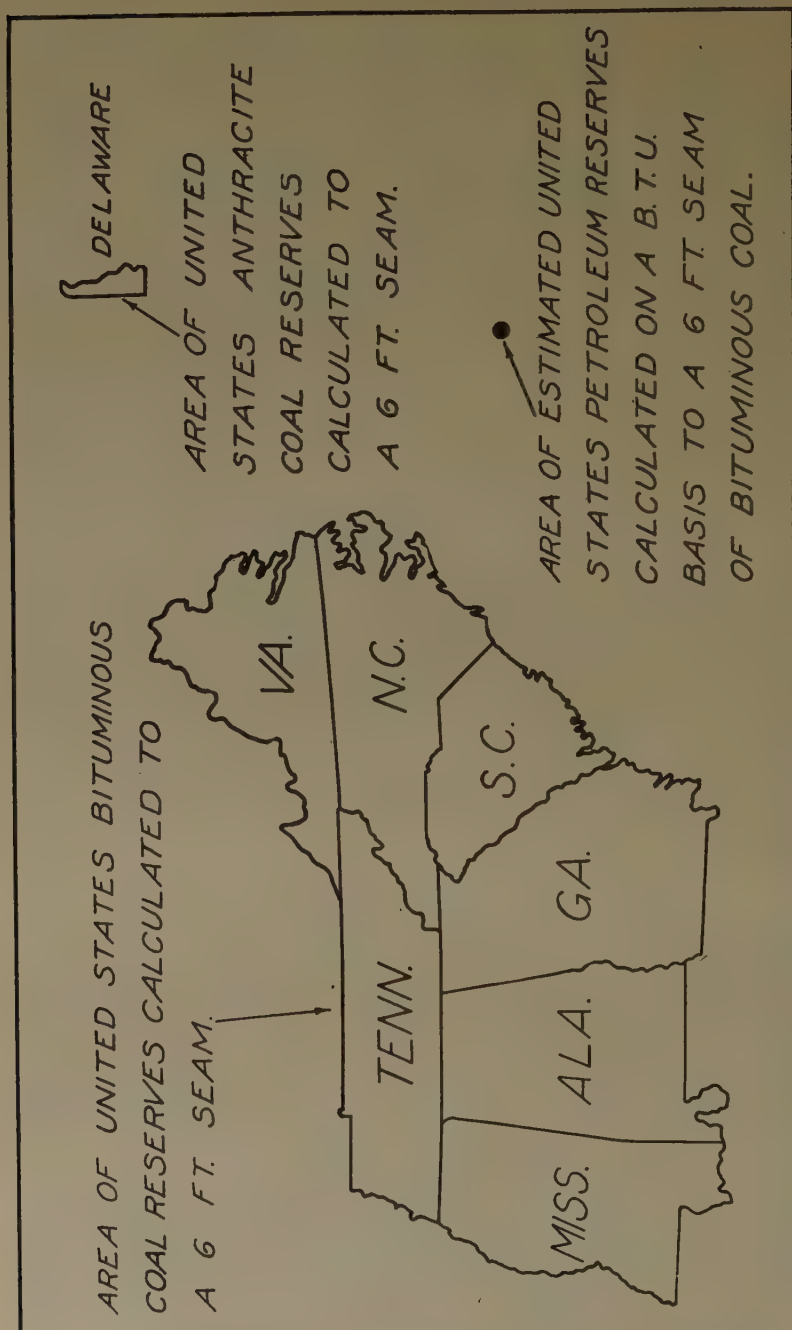 AREA OF UNITED STATES BITUMINOUS
COAL RESERVES CALCULATED TO
A 6 FT. SEAM.
VA.
TENN.
N.C.
S.C.
MISS.
ALA.
GA.
DELAWARE
AREA OF UNITED
STATES ANTHRACITE
COAL RESERVES
CALCULATED TO
A 6 FT. SEAM.
AREA OF ESTIMATED UNITED
STATES PETROLEUM RESERVES
CALCULATED ON A B.T.U.
BASIS TO A 6 FT. SEAM
OF BITUMINOUS COAL.